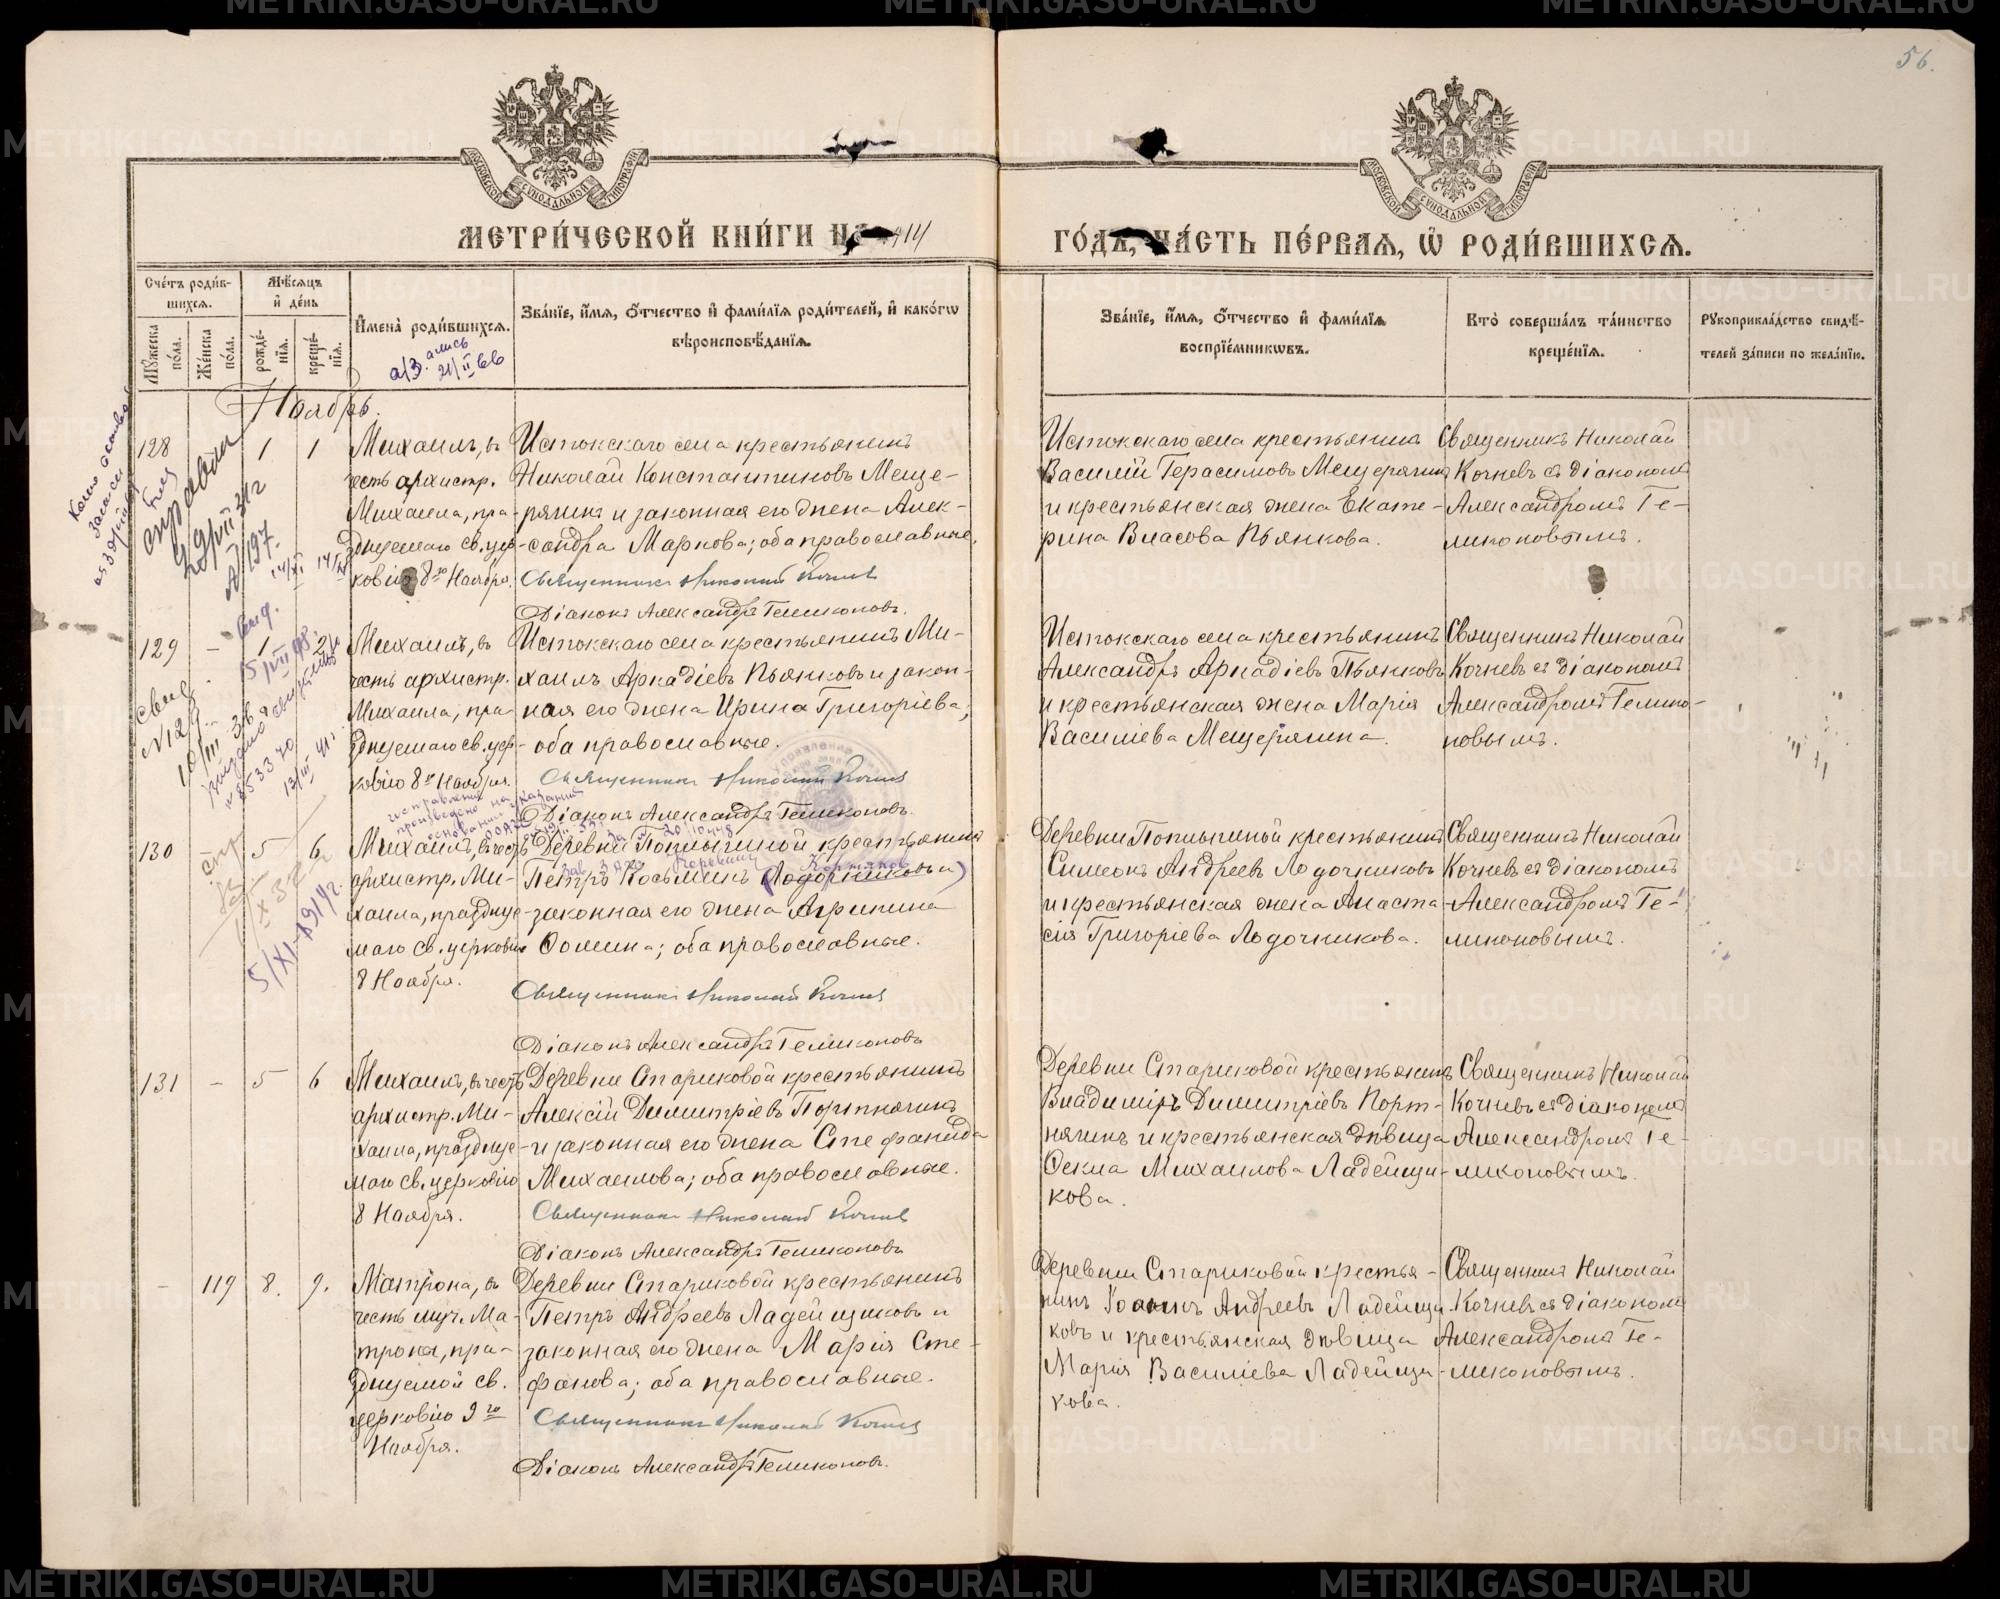 56.
МЕТРИ́ЧЕСКОЙ КНИ́ГИ НА 1914
ГО́ДЪ, ЧА́СТЬ ПЕ́РВАѦ, Ѡ҆ РОДИ́ВШИХСѦ.
Сче́тъ роди́в-
шихсѧ.
Мѣ́сѧцъ
и҆ де́нь
Мꙋ́жеска по́ла.
Же́нска по́ла.
рожде́-
нїѧ.
креще́-
нїѧ.
И҆мена̀ роди́вшихсѧ.
Зва́нїе, и҆́мѧ, ѻ҆́тчество и҆ фами́лїѧ роди́телей, и҆ како́гѡ
вѣроисповѣ́данїѧ.
Зва́нїе, и҆́мѧ, ѻ҆́тчество и҆ фами́лїѧ
воспрїе́мникѡвъ.
Кто̀ соверша́лъ та́инство
креще́нїѧ.
Рꙋкоприкла́дство свидѣ́-
телей за́писи по жела́нїю.
Ноябрь.
128
1
1
Михаилъ, въ
честь архистр.
Михаила, пра-
зднуемаго св. цер-
ковію 8го Ноября.
Истокскаго села крестьянинъ
Николай Константиновъ Меще-
рягинъ и законная его жена Алек-
сандра Маркова; оба православные.
Священникъ Николай Кочнев
Діаконъ Александръ Геликоновъ.
Истокскаго села крестьянинъ
Василій Герасимовъ Мещерягинъ
и крестьянская жена Екате-
рина Власова Пьянкова.
Священникъ Николай
Кочневъ съ діакономъ
Александромъ Ге-
ликоновымъ.
129
-
1
2
Михаилъ, въ
честь архистр.
Михаила, пра-
зднуемаго св. цер-
ковію 8го Ноября.
Истокскаго села крестьянинъ Ми-
хаилъ Аркадіевъ Пьянковъ и закон-
ная его жена Ирина Григоріева;
оба православные.
Священникъ Николай Кочнев
Діаконъ Александръ Геликоновъ.
Истокскаго села крестьянинъ
Александръ Аркадіевъ Пьянковъ
и крестьянская жена Марія
Василіева Мещерягина.
Священникъ Николай
Кочневъ съ діакономъ
Александромъ Гелико-
новымъ.
130
5
6
Михаилъ, въ честь
архистр. Ми-
хаила, праздуе-
маго св. церковію
8 Ноября.
крестьянинъ
Петръ Косьминъ (Лодочниковъ и)
законная его жена Агрипина
Ѳомина; оба православные.
Священникъ Николай Кочнев
Діаконъ Александръ Геликоновъ
крестьянинъ
Симеонъ Андреевъ Лодочниковъ
и крестьянская жена Анаста-
сія Григоріева Лодочникова.
Священникъ Николай
Кочневъ съ діакономъ
Александромъ Ге-
ликоновымъ.
131
-
5
6
Михаилъ, въ честь
архистр. Ми-
хаила, праздуе-
маго св. церковію
8 Ноября.
Деревни Стариковой крестьянинъ
Алексій Димитріевъ Портнягинъ
и законная его жена Стефанида
Михаилова; оба православные.
Священникъ Николай Кочнев
Діаконъ Александръ Геликоновъ
Деревни Стариковой крестьянинъ
Владиміръ Димитріевъ Порт-
нягинъ и крестьянская дѣвица
Ѳекла Михаилова Ладейщи-
кова.
Священникъ Николай
Кочневъ съ діакономъ
Александромъ Ге-
ликоновымъ.
-
119
8.
9.
Матрона, въ
честь муч. Ма-
троны, пра-
зднуемой св.
церковію 9го
Ноября.
Деревни Стариковой крестьянинъ
Петръ Андреевъ Ладейщиковъ и
законная его жена Марія Сте-
фанова; оба православные.
Священникъ Николай Кочнев
Діаконъ Александръ Геликоновъ.
Деревни Стариковой крестья-
нинъ Іоаннъ Андреевъ Ладейщи-
ковъ и крестьянская дѣвица
Марія Василіева Ладейщи-
кова.
Священникъ Николай
Кочневъ съ діакономъ
Александромъ Ге-
ликоновымъ.
METRIKI.GASO-URAL.RU